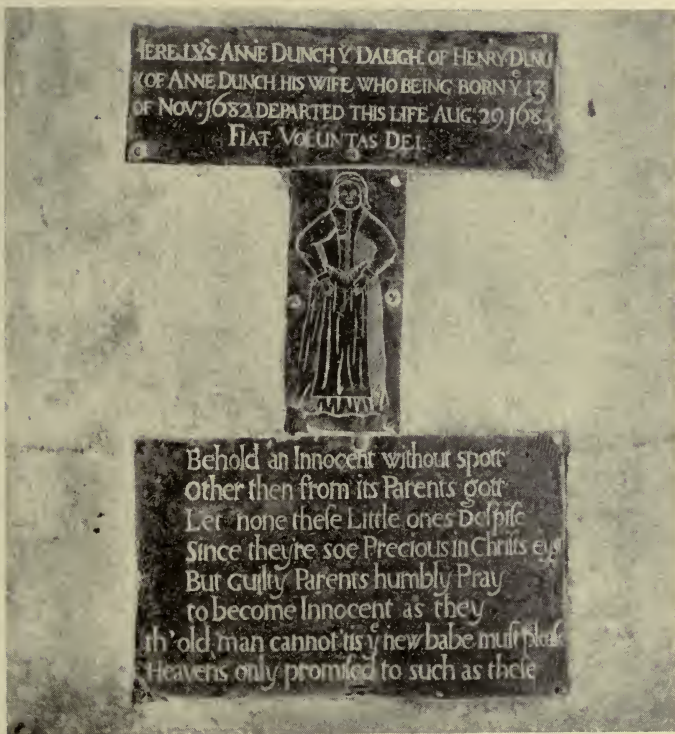 HERE LYS ANNE DUNCH Yᵉ DAUGH. OF HENRY DUNC
OF ANNE DUNCH HIS WIFE, WHO BEING BORN Yᵉ 13
OF NOV: 1682 DEPARTED THIS LIFE AUG. 29 168
FIAT VOLUNTAS DEI.
Behold an Innocent without spott
Other then from its Parents gott
Let none theſe Little ones Deſpiſe
Since theyre soe Precious in Chriſts eys
But Guilty Parents humbly Pray
to become Innocent as they
th'old man cannot tis yᵉ new babe muſt pleaſe
Heavens only promiſed to such as theſe